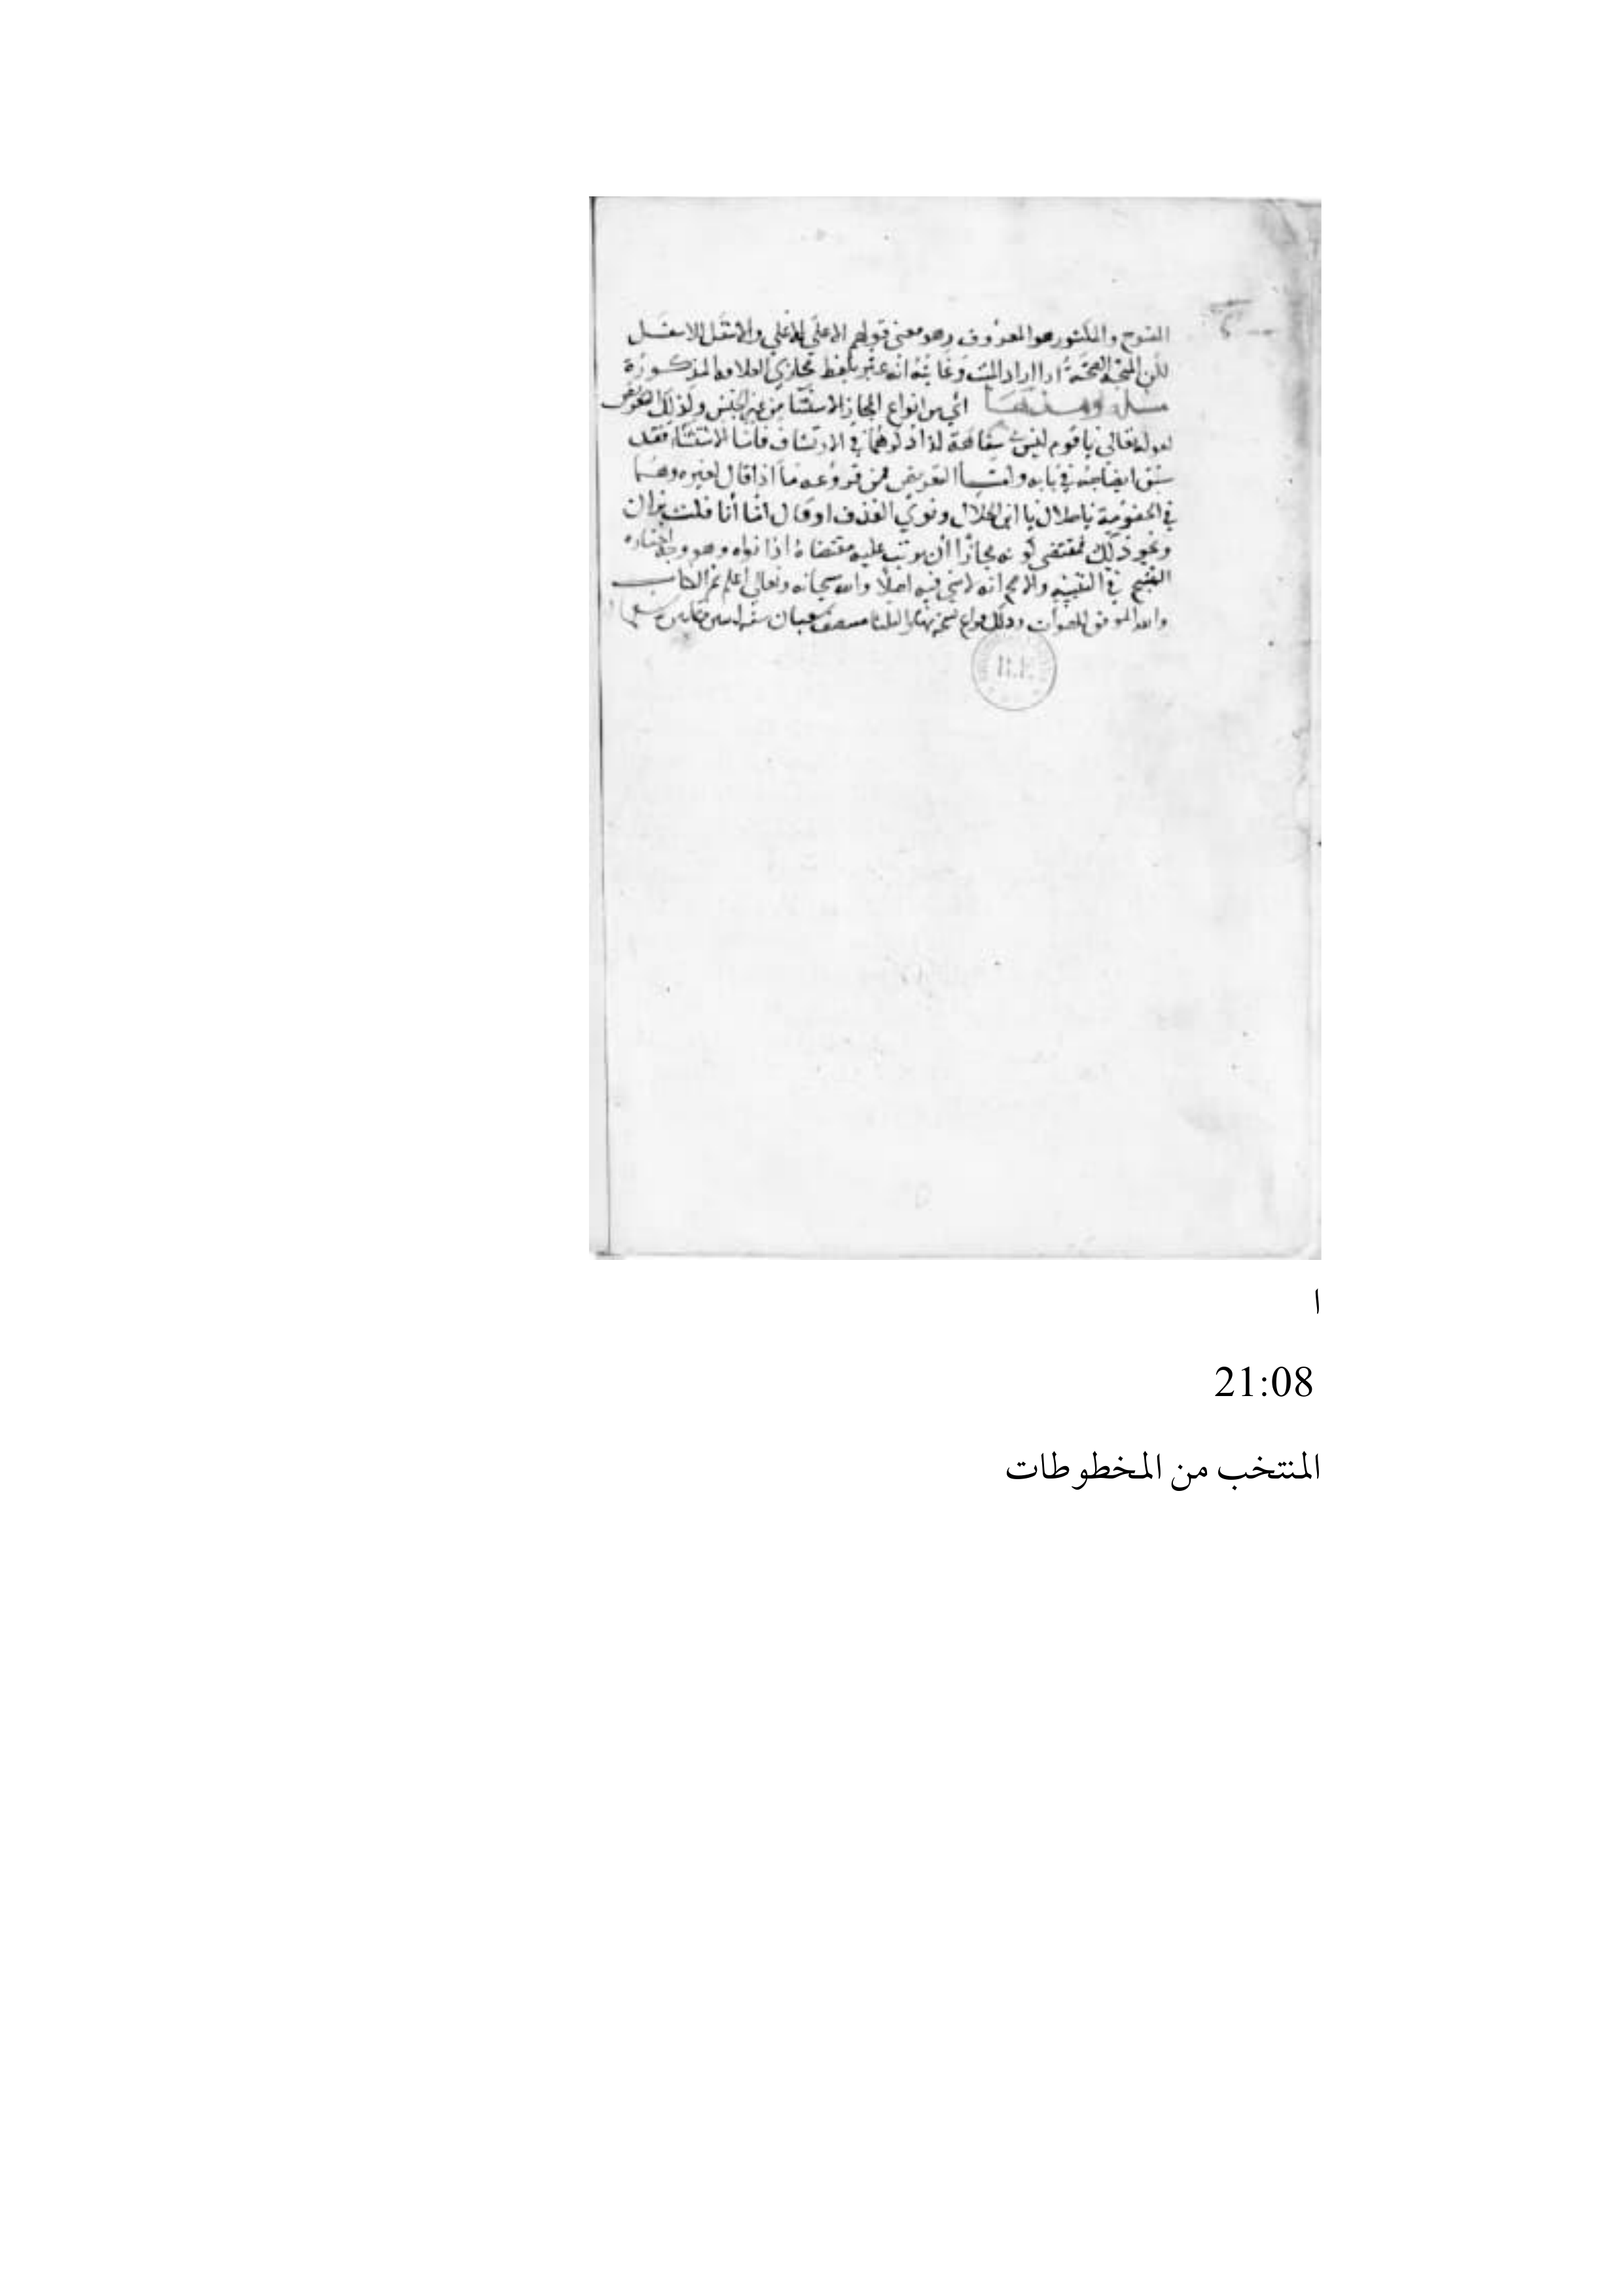 المفتوح والمكسور هو المعروف وهو معنى قولهم الاعلى للاعلى والاسفل للاسفل
لكن المتجه الصحة اذا اراد الميت وغايته انه عبر بلفظ مجازي للعلاقه المذكورة
مسئلة ومنها اي من انواع المجاز الاستثنا من غير الجنس وكذلك التعريض
لقوله تعالى يا قوم ليس بي سفاهة كذا ذكرهما في الارتشاف فاما الاستثنا فقد
سبق ايضاحه في بابه واما التعريض فمن فروعه ما اذا قال لغيره وهما
في الخصومة يا حلال يا ابن الحلال ونوى القذف او قال اما أنا فلست بزان
ونحو ذلك فمقتضى كونه مجازا أن يرتب عليه مقتضاه اذا نواه وهو وجه اختاره
الشيخ في التنبيه والاصح انه لا شي فيه اصلا والله سبحانه وتعالى اعلم تم الكتاب
والله الموفق للصواب وذلك شعبان
ا
21:08
المنتخب من المخطوطات